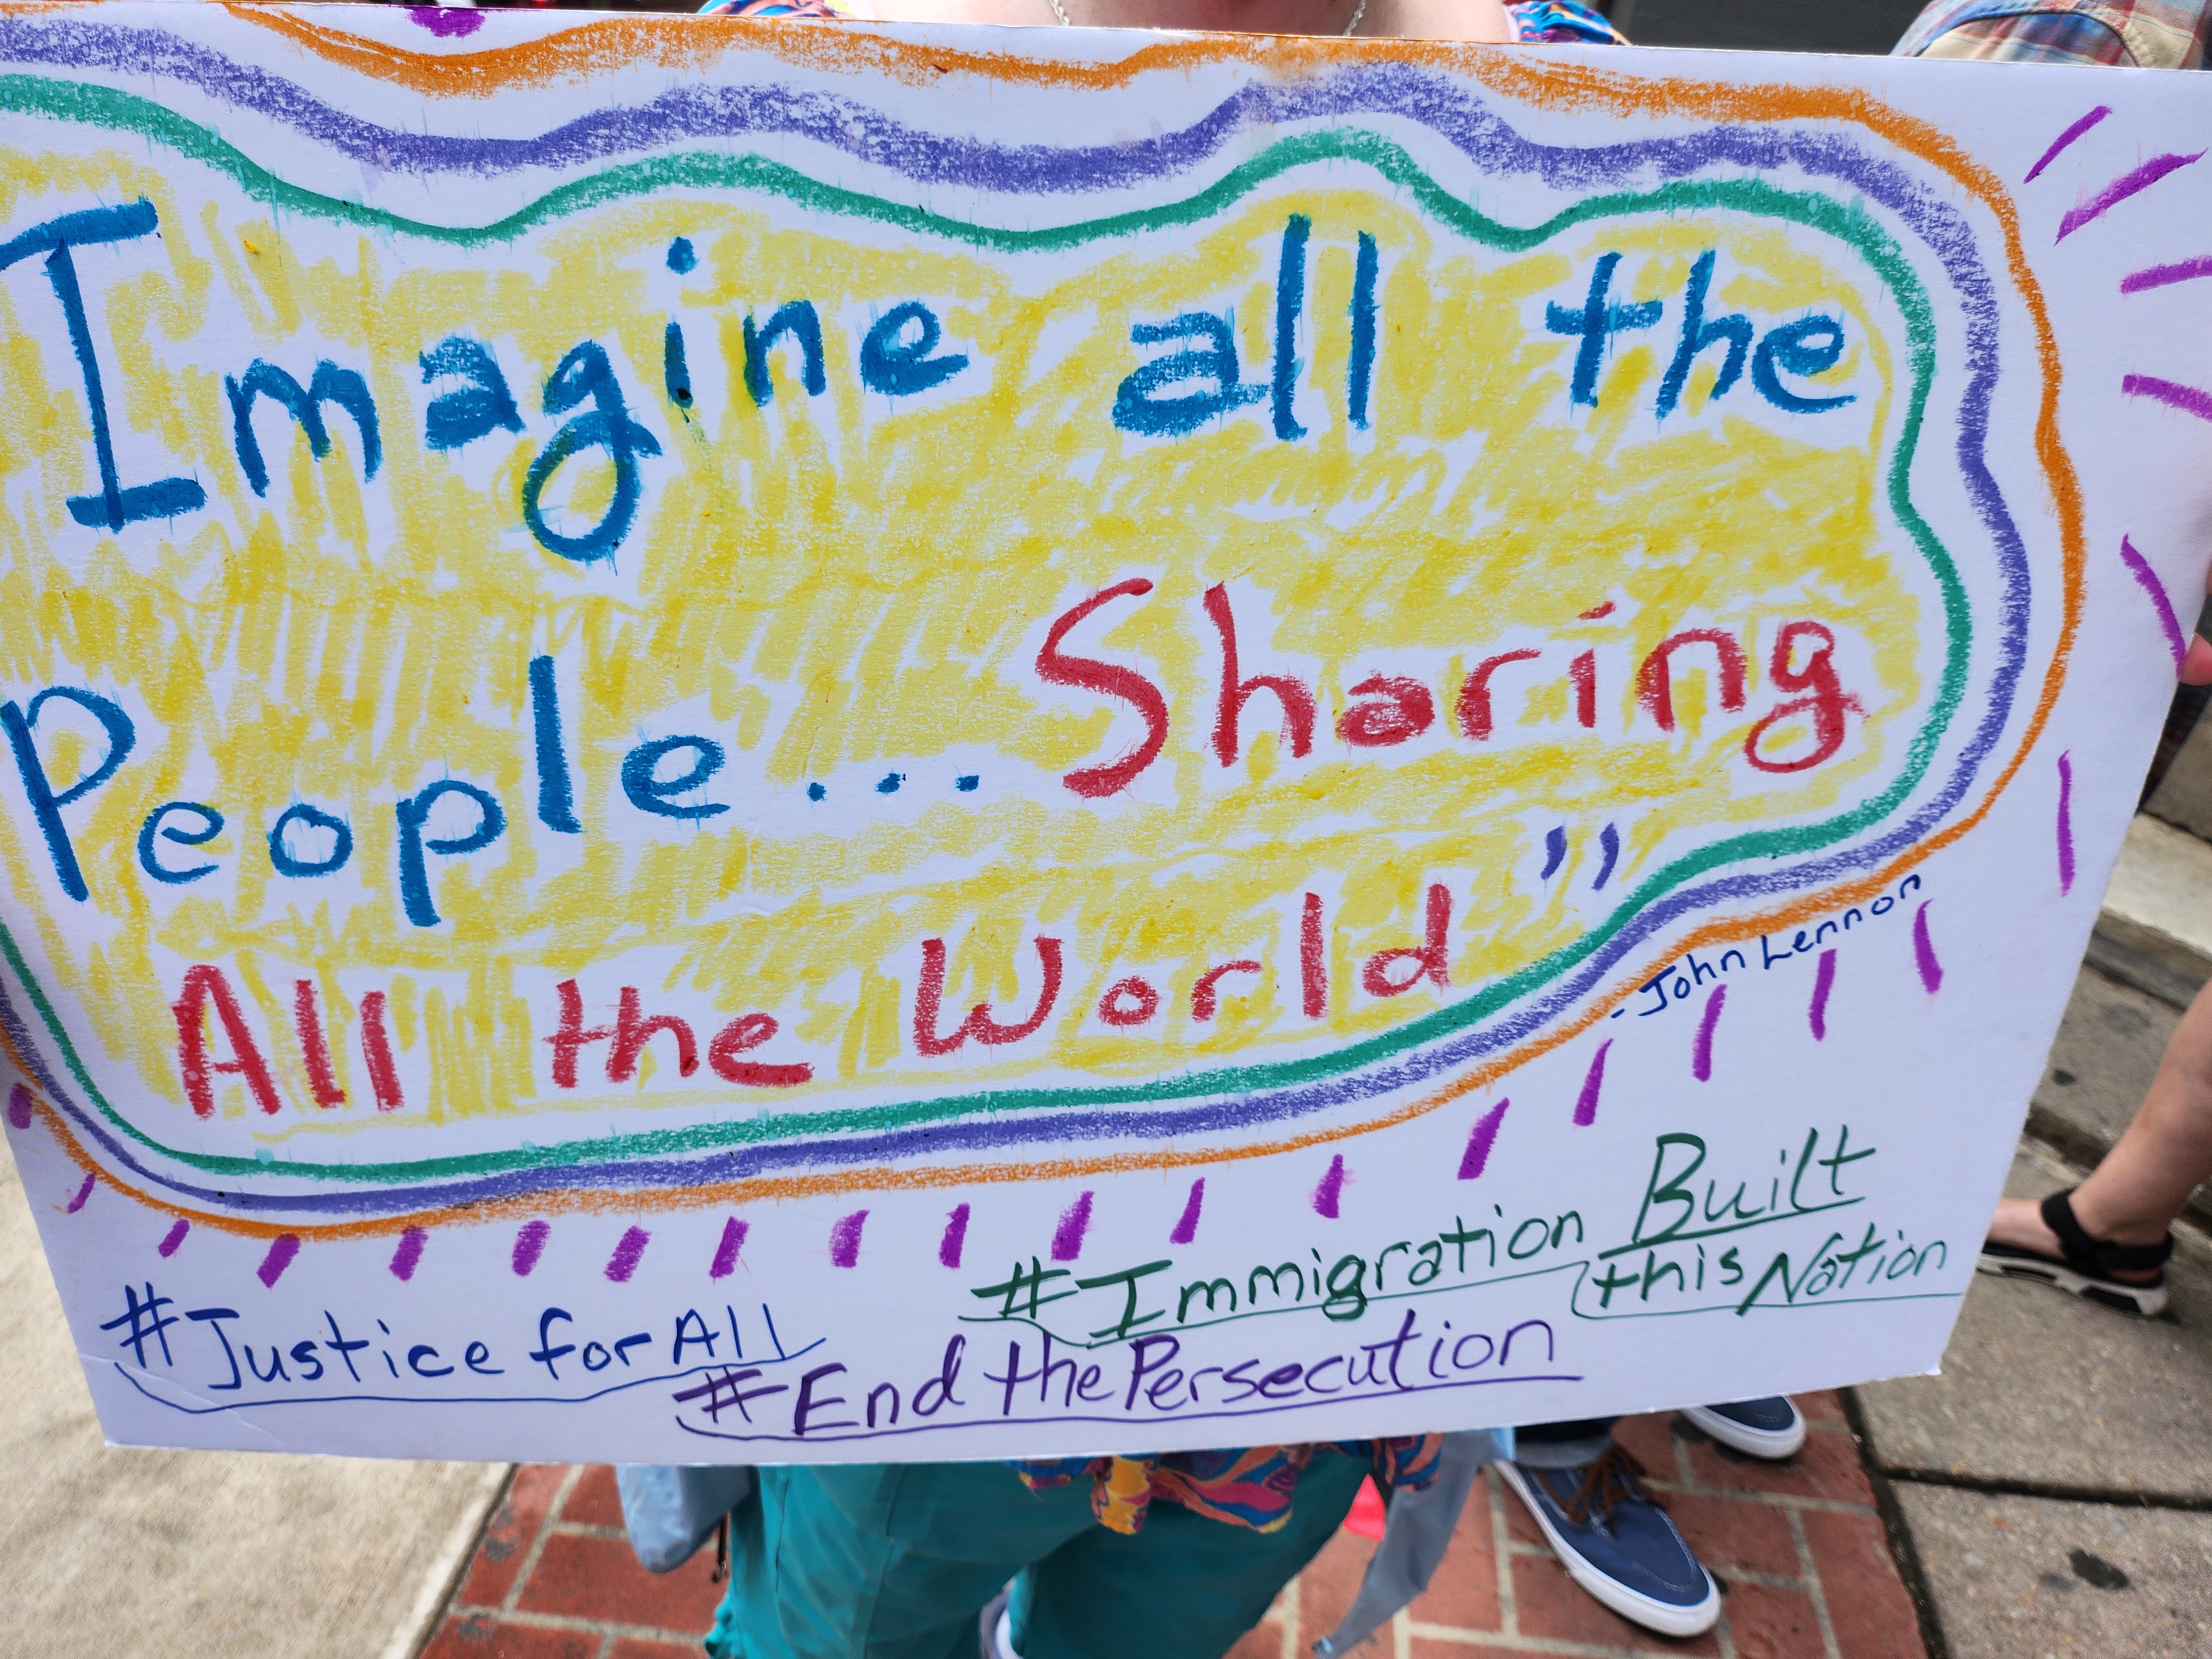 Imagine all the
People... Sharing
All the World”
-John Lennon
#Immigration Built
this Nation
#Justice for All
#End the Persecution